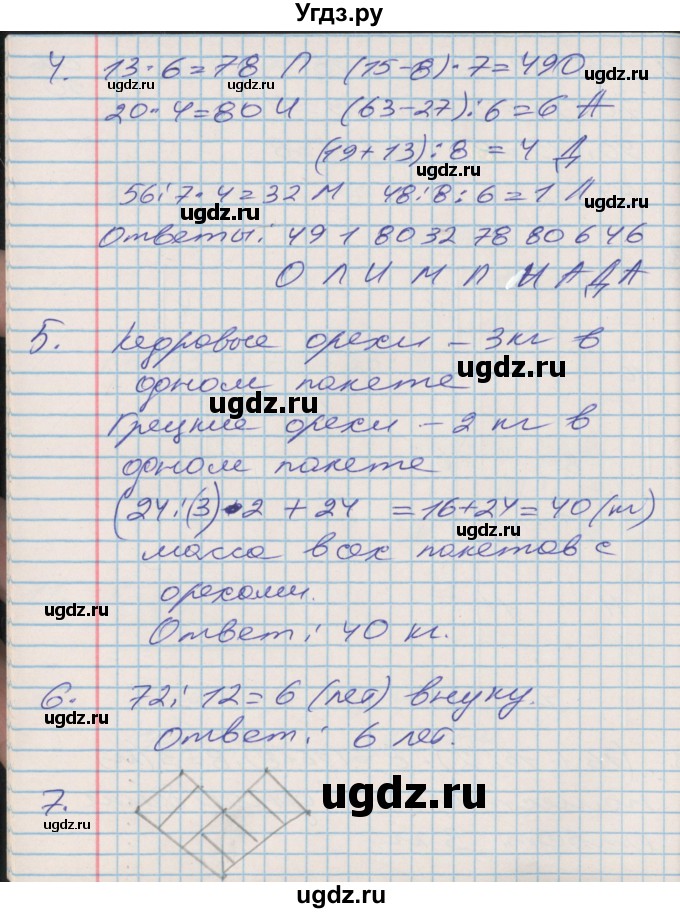 Угдз.ру
4. 13·6=78 П (15-8)·7=49 О
угдз.ру
ugdz.ru
20·4=80 И (63-27):6=6 А
ugdz.ru
(19+13):8=4 Д
56:7·4=32 М 48:8:6=1 Л
ugdz.ru
ugdz.ru
Ответы: 49 1 80 32 78 80 6 4 6
О Л И М П И А Д А
5. Кедровые орехи – 3кг в
ugdz.ru
одном пакете
ugdz.ru
Грецкие орехи – 2 кг в
одном пакете
(24:(3)·2 + 24 =16+24=40 (кг)
ugdz.ru
масса всех пакетов с
орехами.
ugdz.ru
Ответ: 40 кг.
6. 72:12=6 (лет) внуку.
ugdz.ru
Ответ: 6 лет.
7.
ugdz.ru
ugdz.ru
ugdz.ru